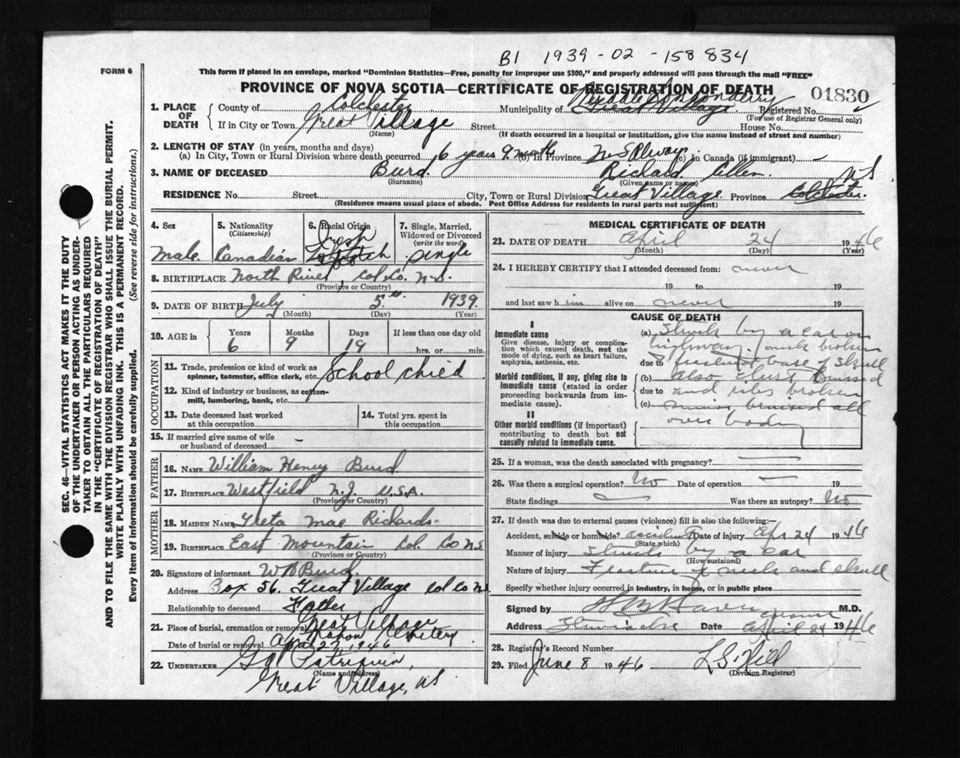 B1 1939-02-158834
FORM 6
This form if placed in an envelope, marked "Dominion Statistics—Free, penalty for improper use $300," and properly addressed will pass through the mail "FREE"
PROVINCE OF NOVA SCOTIA—CERTIFICATE OF REGISTRATION OF DEATH
01830
1. PLACE OF DEATH County of Colchester Municipality of Great Village Registered No.
(For use of Registrar General only)
If in City or Town Great Village Street House No.
(Name) (If death occurred in a hospital or institution, give the name instead of street and number)
2. LENGTH OF STAY (in years, months and days)
(a) In City, Town or Rural Division where death occurred 6 years 9 months (b) In Province N S Always (c) In Canada (if immigrant) —
3. NAME OF DECEASED Burd Richard Allen
(Surname) (Given name or names)
RESIDENCE No. Street City, Town or Rural Division Great Village Province N S
(Residence means usual place of abode. Post Office Address for residents in rural parts not sufficient)
4. Sex Male
5. Nationality (Citizenship) Canadian
6. Racial Origin
7. Single, Married, Widowed or Divorced (write the word) Single
8. BIRTHPLACE North River Col. Co. N.S.
(Province or Country)
9. DATE OF BIRTH July 5th 1939
(Month) (Day) (Year)
10. AGE in Years 6 Months 9 Days 19 If less than one day old hrs. or min.
OCCUPATION
11. Trade, profession or kind of work as spinner, teamster, office clerk, etc. School child
12. Kind of industry or business, as cotton-mill, lumbering, bank, etc.
13. Date deceased last worked at this occupation
14. Total yrs. spent in this occupation
15. If married give name of wife or husband of deceased —
FATHER
16. NAME William Henry Burd
17. BIRTHPLACE Westfield N.J. U.S.A.
(Province or Country)
MOTHER
18. MAIDEN NAME Greta Mae Richards
19. BIRTHPLACE East Mountain Col. Co N S
(Province or Country)
20. Signature of informant W H Burd
Address Box 56, Great Village Col Co N S
Relationship to deceased Father
21. Place of burial, cremation or removal Great Village Mahon Cemetery
Date of burial or removal Apr 27, 1946
22. UNDERTAKER Patriquin
(Name and address)
Great Village, NS
MEDICAL CERTIFICATE OF DEATH
23. DATE OF DEATH April 24 1946
(Month) (Day) (Year)
24. I HEREBY CERTIFY that I attended deceased from: never
19 to 19
and last saw him alive on never 19
CAUSE OF DEATH
I
Immediate cause
Give disease, injury or complication which caused death, not the mode of dying, such as heart failure, asphyxia, asthenia, etc.
(a) Struck by a car on highway. neck broken
due to fracture base of skull
Morbid conditions, if any, giving rise to immediate cause (stated in order proceeding backwards from immediate cause).
(b) also Chest bruised
due to and ribs broken
(c) bruised all over body
II
Other morbid conditions (if important) contributing to death but not causally related to immediate cause.
25. If a woman, was the death associated with pregnancy? —
26. Was there a surgical operation? No Date of operation — 19
State findings — Was there an autopsy? No
27. If death was due to external causes (violence) fill in also the following:—
Accident, suicide or homicide? accident Date of injury Apr 24 1946
(State which)
Manner of injury Struck by a car
(How sustained)
Nature of injury Fracture of neck and skull
Specify whether injury occurred in industry, in home, or in public place
Signed by M.D.
Address Date April 24 1946
28. Registrar's Record Number
29. Filed June 8 1946 L.S. Hill
(Division Registrar)
SEC. 46—VITAL STATISTICS ACT MAKES IT THE DUTY OF THE UNDERTAKER OR PERSON ACTING AS UNDERTAKER TO OBTAIN ALL THE PARTICULARS REQUIRED IN THE "CERTIFICATE OF REGISTRATION OF DEATH" AND TO FILE THE SAME WITH THE DIVISION REGISTRAR WHO SHALL ISSUE THE BURIAL PERMIT.
WRITE PLAINLY WITH UNFADING INK. THIS IS A PERMANENT RECORD.
Every item of information should be carefully supplied. (See reverse side for instructions.)